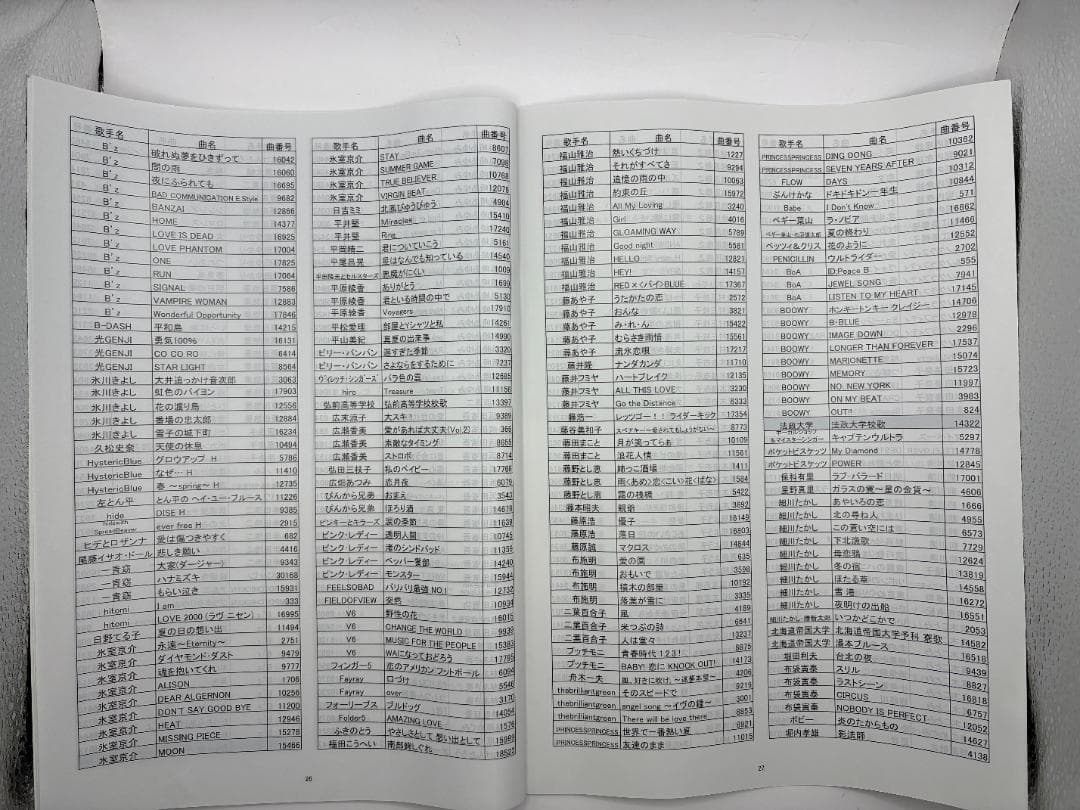 歌手名 曲名 曲番号
B'z 破れぬ夢をひきずって 16042
B'z 闇の雨 16060
B'z 夜にふられても 16695
B'z BAD COMMUNICATION E.Style 9682
B'z BANZAI 12866
B'z HOME 14377
B'z LOVE IS DEAD 16925
B'z LOVE PHANTOM 17004
B'z ONE 12825
B'z RUN 17064
B'z SIGNAL 7586
B'z VAMPIRE WOMAN 12883
B'z Wonderful Opportunity 17846
B-DASH 平和島 14215
光GENJI 勇気100% 16131
光GENJI CO CO RO 6414
光GENJI STAR LIGHT 8564
氷川きよし 大井追っかけ音次郎 3063
氷川きよし 虹色のバイヨン 17903
氷川きよし 花の渡り鳥 12556
氷川きよし 番場の忠太郎 12884
氷川きよし 雪子の城下町 16234
久松史奈 天使の休息 10494
HystericBlue グロウアップ H 5786
HystericBlue なぜ… H 11410
HystericBlue 春 ～spring～ H 12735
左とん平 とん平の ヘイ・ユー・ブルース 11226
hide DISE H 9385
hide with SpreadBeaver ever free H 2915
ヒデとロザンナ 愛は傷つきやすく 682
尾藤イサオ・ドール 悲しき願い 4416
一青窈 大家(ダージャー) 9343
一青窈 ハナミズキ 30168
一青窈 もらい泣き 15931
hitomi I am 333
hitomi LOVE 2000 (ラヴ ニセン) 16995
日野てる子 夏の日の想い出 11494
氷室京介 永遠～Eternity～ 2751
氷室京介 ダイヤモンド・ダスト 9479
氷室京介 魂を抱いてくれ 9777
氷室京介 ALISON 1706
氷室京介 DEAR ALGERNON 10256
氷室京介 DON'T SAY GOOD BYE 11200
氷室京介 HEAT 12946
氷室京介 MISSING PIECE 15278
氷室京介 MOON 15466
26
歌手名 曲名 曲番号
氷室京介 STAY 8607
氷室京介 SUMMER GAME 7098
氷室京介 TRUE BELIEVER 10768
氷室京介 VIRGIN BEAT 12076
日吉ミミ 北風ぴゅうぴゅう 4904
平井堅 Miracles 15410
平井堅 Ring 17240
平岡精二 君についていこう 5161
平尾昌晃 星はなんでも知っている 14540
平田隆夫とセルスターズ 悪魔がにくい 1009
平原綾香 ありがとう 1699
平原綾香 君といる時間の中で 5130
平原綾香 Voyagers 17910
平松愛理 部屋とYシャツと私 14261
平山美紀 真夏の出来事 14990
ビリー・バンバン 過ぎた季節 3320
ビリー・バンバン さよならをするために 7237
ヴィレッヂ・シンガーズ バラ色の雲 12685
hiro Treasure 11156
弘前高等学校 弘前高等学校校歌 13397
広末涼子 大スキ! 9389
広瀬香美 愛があれば大丈夫(Vol.2) 366
広瀬香美 素敵なタイミング 8655
広瀬香美 ストロボ 8714
弘田三枝子 私のベイビー 17766
広畑あつみ 恋月夜 6079
ぴんから兄弟 おまえ 3543
ぴんから兄弟 ほろり酒 14678
ピンキーとキラーズ 涙の季節 11639
ピンク・レディー 透明人間 10745
ピンク・レディー 渚のシンドバッド 11356
ピンク・レディー ペッパー警部 14240
ピンク・レディー モンスター 15944
FEELSOBAD バリバリ最強NO.1 12732
FIELDOFVIEW 突然 10934
V6 野性の花 16015
V6 CHANGE THE WORLD 9939
V6 MUSIC FOR THE PEOPLE 15383
V6 WAになっておどろう 17795
フィンガー5 恋のアメリカンフットボール 6094
Fayray 口づけ 5546
Fayray over 3170
フォーリーブス ブルドッグ 14054
Folder5 AMAZING LOVE 1576
ふきのとう やさしさとして想い出として 15966
福田こうへい 南部蝉しぐれ 18522
歌手名 曲名 曲番号
福山雅治 熱いくちづけ 1227
福山雅治 それがすべてさ 9294
福山雅治 追憶の雨の中 10063
福山雅治 約束の丘 15972
福山雅治 All My Loving 3240
福山雅治 Girl 4016
福山雅治 GLOAMING WAY 5789
福山雅治 Good night 5561
福山雅治 HELLO 12821
福山雅治 HEY! 14157
福山雅治 RED×くパイ>BLUE 17367
藤あや子 うたかたの恋 2572
藤あや子 おんな 3821
藤あや子 み・れ・ん 15422
藤あや子 むらさき雨情 15561
藤あや子 流氷恋唄 17217
藤井隆 ナンダカンダ 11710
藤井フミヤ ハートブレイク 12135
藤井フミヤ ALL THIS LOVE 3230
藤井フミヤ Go the Distance 8333
藤浩一 レッツゴー!!ライダーキック 17354
藤谷美和子 愛されてもしょうがない～ 8773
藤田まこと 月が笑ってらぁ 10109
藤田まこと 浪花人情 11561
藤野とし恵 姉っこ酒場 1411
藤野とし恵 雨(あめ)恋(こい)花(ばな) 1584
藤野とし恵 霧の桟橋 5422
藤本昭夫 親爺 3692
藤原浩 優子 16149
藤原浩 落日 16603
藤原誠 マクロス 14844
布施明 愛の園 635
布施明 おもいで 3598
布施明 積木の部屋 10192
布施明 落葉が雪に 3335
二葉百合子 関 4189
二葉百合子 米つぶの詩 6841
二葉百合子 人は堂々 13237
プッチモニ 青春時代 1.2.3! 8875
プッチモニ BABY! 恋に KNOCK OUT! 14173
舟木一夫 風、好きに吹け、～迷華本章～ 4206
thebrilliantgreen そのスピードで 9219
thebrilliantgreen angel song ～イヴの鐘～ 3001
thebrilliantgreen There will be love there 8853
PRINCESSPRINCESS 世界で一番熱い夏 8921
PRINCESSPRINCESS 友達のまま 11015
27
歌手名 曲名 曲番号
PRINCESSPRINCESS DING DONG 10362
PRINCESSPRINCESS SEVEN YEARS AFTER 9021
FLOW DAYS 10312
ぶんけかな ドキドキドン一年生 10844
Babe I Don't Know 571
ペギー葉山 ラ・ノビア 16862
夏の終わり 11466
ベッツィ&クリス 花のように 12552
PENICILLIN ウルトライダー 2702
BoA ID;Peace B 555
BoA JEWEL SONG 7941
BoA LISTEN TO MY HEART 17145
BOOWY ホンキートンキー クレイジー 14706
BOOWY B・BLUE 12978
BOOWY IMAGE DOWN 2296
BOOWY LONGER THAN FOREVER 17537
BOOWY MARIONETTE 15074
BOOWY MEMORY 15723
BOOWY NO. NEW YORK 11997
BOOWY ON MY BEAT 3983
BOOWY OUT!! 824
法政大学 法政大学校歌 14322
ボーカルショップ&マイスターシンガー キャプテンウルトラ 5297
ポケットビスケッツ My Diamond 14778
ポケットビスケッツ POWER 12845
保科有里 ラブ・バラード 17001
星野真里 ガラスの翼～星の金貨～ 4606
細川たかし あやいろの恋 1666
細川たかし 北の尋ね人 4955
細川たかし この蒼い空には 6573
細川たかし 下北漁歌 7729
細川たかし 母恋鴉 12624
細川たかし 冬の宿 13819
細川たかし ほたる草 14558
細川たかし 雪港 16272
細川たかし 夜明けの出船 16551
いつかどこかで 2053
北海道帝国大学 北海道帝国大学予科 寮歌 14582
北海道帝国大学 湯本ブルース 16518
堀田利夫 台北の夜 9439
布袋寅泰 スリル 8827
布袋寅泰 ラストシーン 16818
布袋寅泰 CIRCUS 6757
布袋寅泰 NOBODY IS PERFECT 12052
ボビー 炎のたからもの 14627
堀内孝雄 影法師 4138